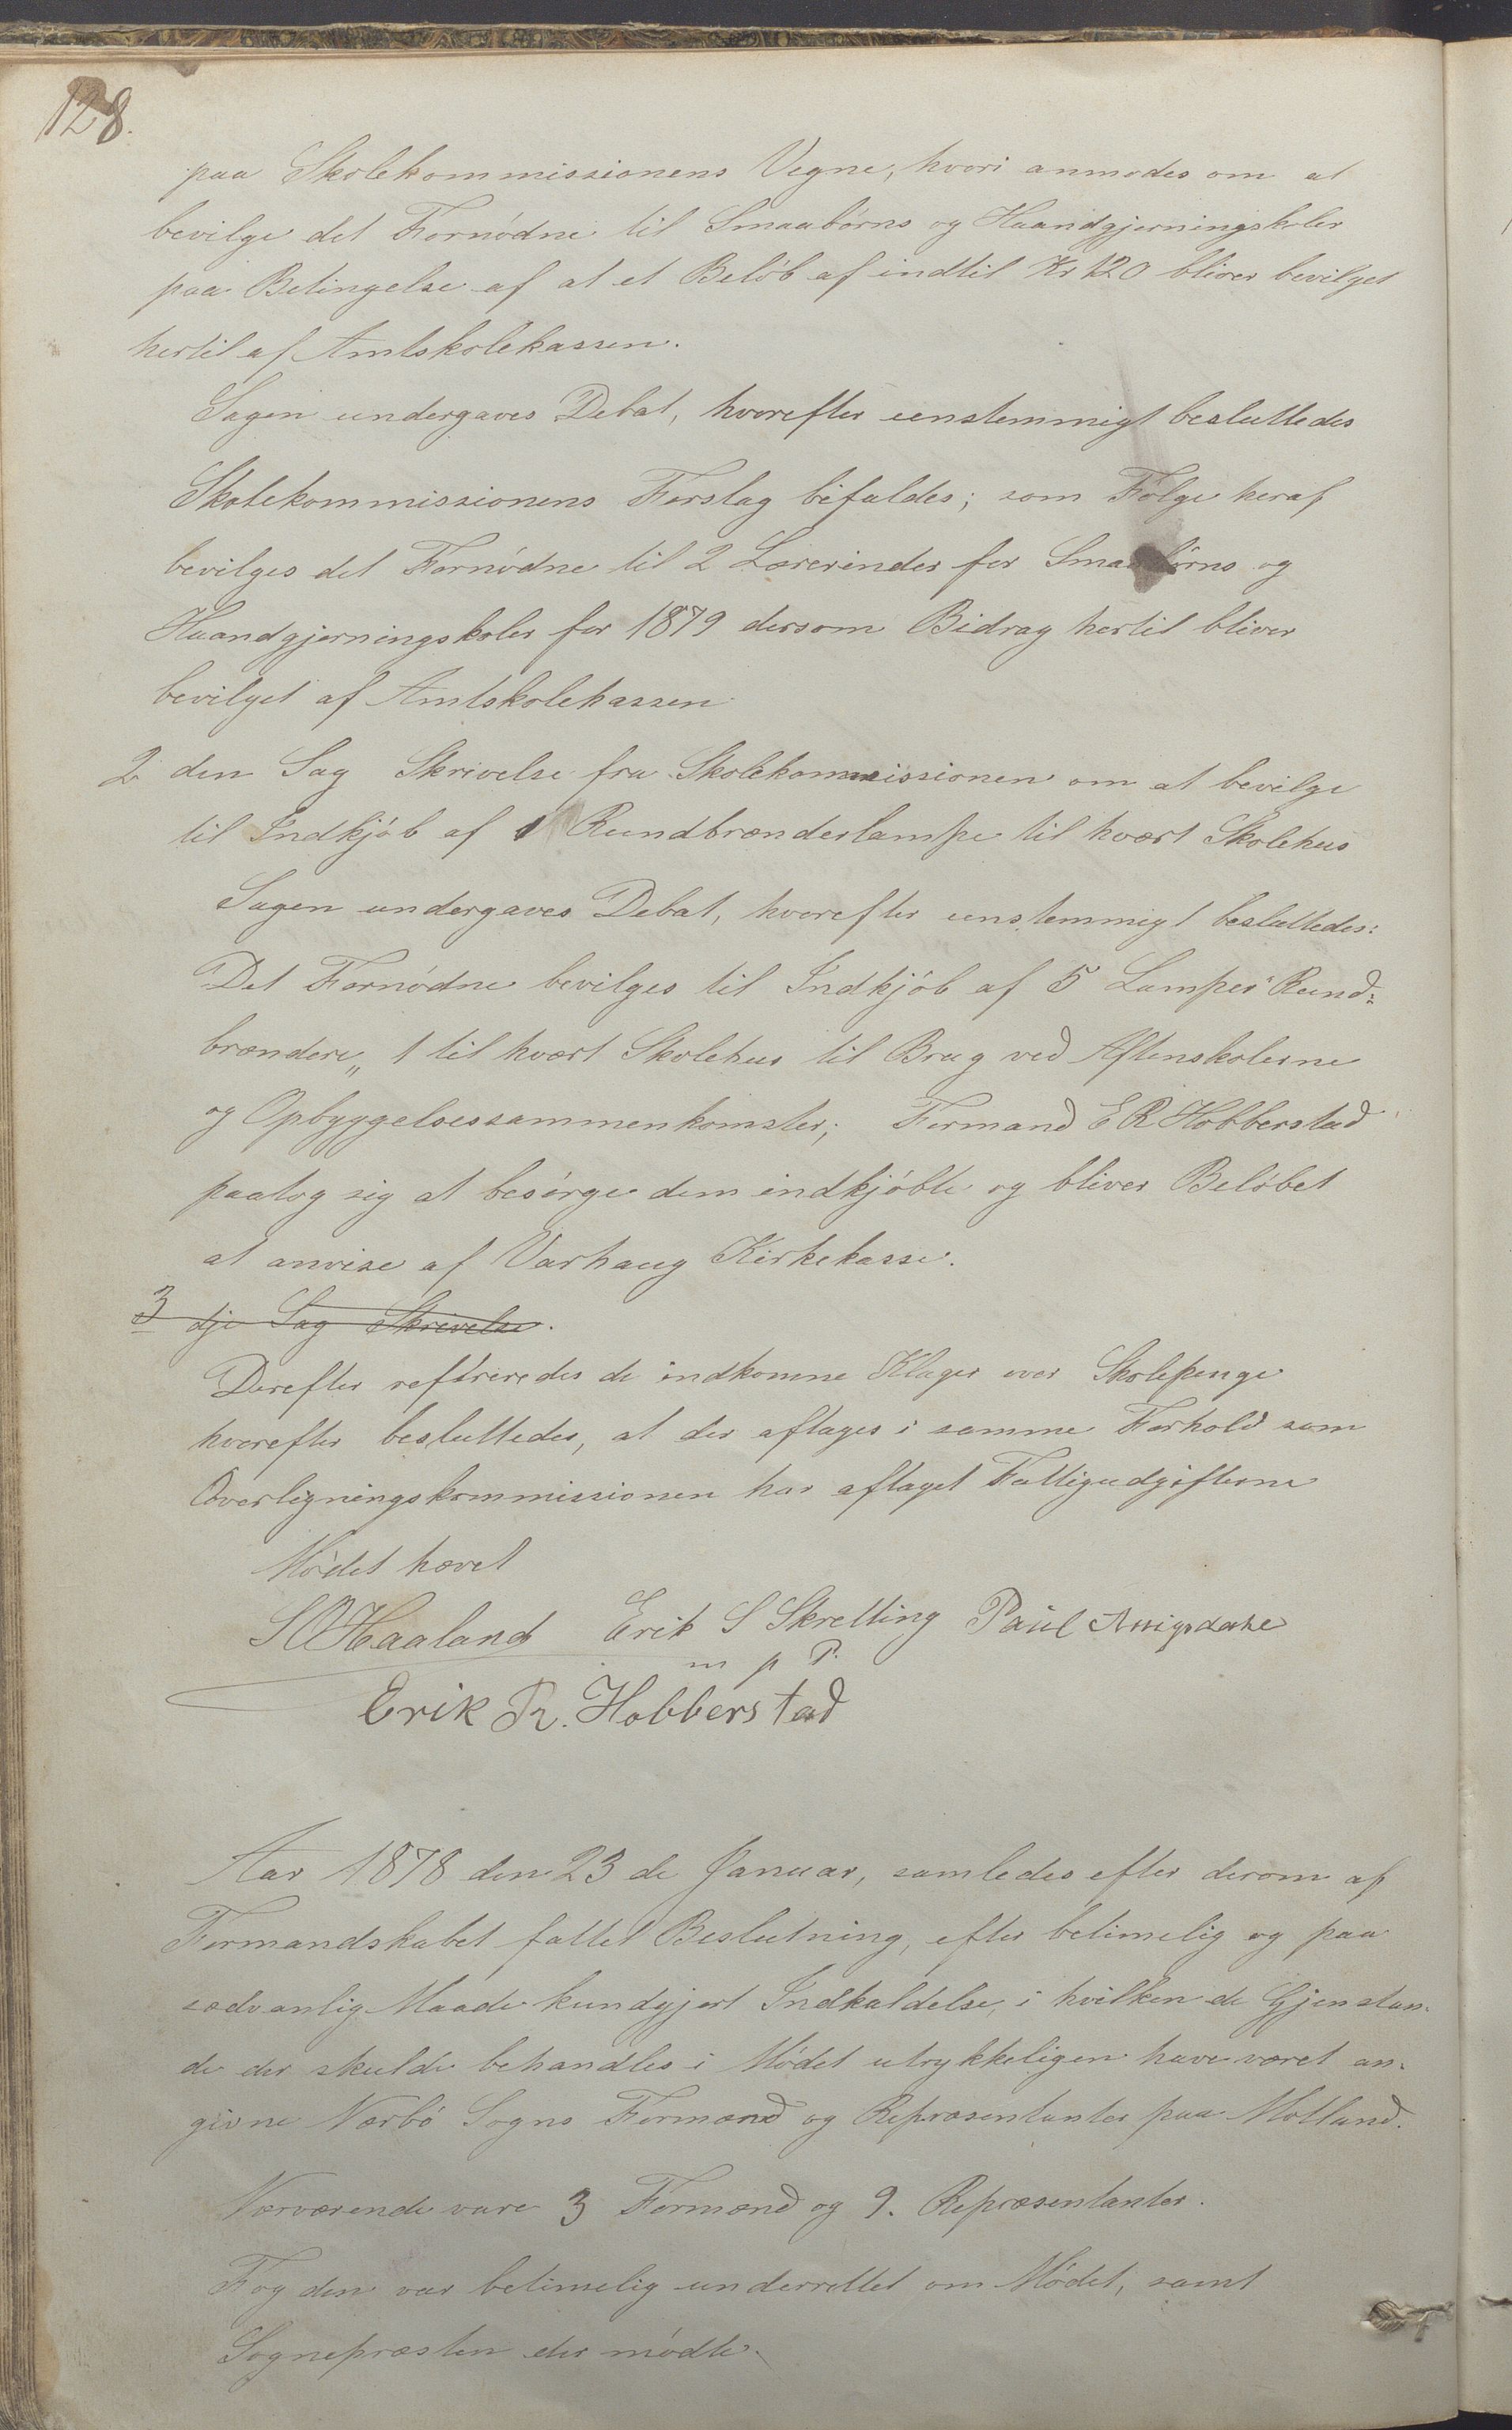 128.
paa Skolekommissionens Vegne, hvori anmodes om at
bevilge det Fornødne til Smaabørns og Haandgjerningskoler
paa Betingelse af at et Beløb af indtil Kr 120 bliver bevilget
hertil af Amtskolekassen.
Sagen undergaves Debat, hvorefter eenstemmigt besluttedes
Skolekommissionens Forslag bifaldes; som Følge heraf
bevilges det Fornødne til 2 Lærerinder for Smaabørns og
Haandgjerningskoler for 1879 dersom Bidrag hertil bliver
bevilget af Amtskolekassen
2 den Sag Skrivelse fra Skolekommissionen om at bevilge
til Indkjøb af 1 Rundbrænderlampe til hvært Skolehus
Sagen undergaves Debat, hvorefter eenstemmigt besluttedes:
Det Fornødne bevilges til Indkjøb af 5 Lamper "Rund-
brændere„ 1 til hvært Skolehus til Brug ved Aftenskolerne
og Opbyggelsessammenkomster; Formand E R Hobberstad
paatog sig at besørge dem indkjøbte og bliver Beløbet
at anvise af Varhaug Kirkekasse.
3 dje Sag Skrivelse.
Derefter refereredes de indkomne Klager over Skolepenge
hvorefter besluttedes, at der aftages i samme Forhold som
Overligningskommissionen har aftaget Fattigudgifterne
Mødet hævet
S O Haaland Erik S Skretting Paul
m p P.
Erik R. Hobberstad
Aar 1878 den 23 de Januar, samledes efter derom af
Formandskabet fattet Beslutning, efter betimelig og paa
sædvanlig Maade kundgjort Indkaldelse, i hvilken de Gjenstan-
de der skulde behandles i Mødet utrykkeligen have været an-
givne Nærbø Sogns Formænd og Repræsentanter paa Motland.
Nærværende vare 3 Formænd og 9. Repræsentanter.
Fogden var betimelig underrettet om Mødet, samt
Sognepræsten der mødte.